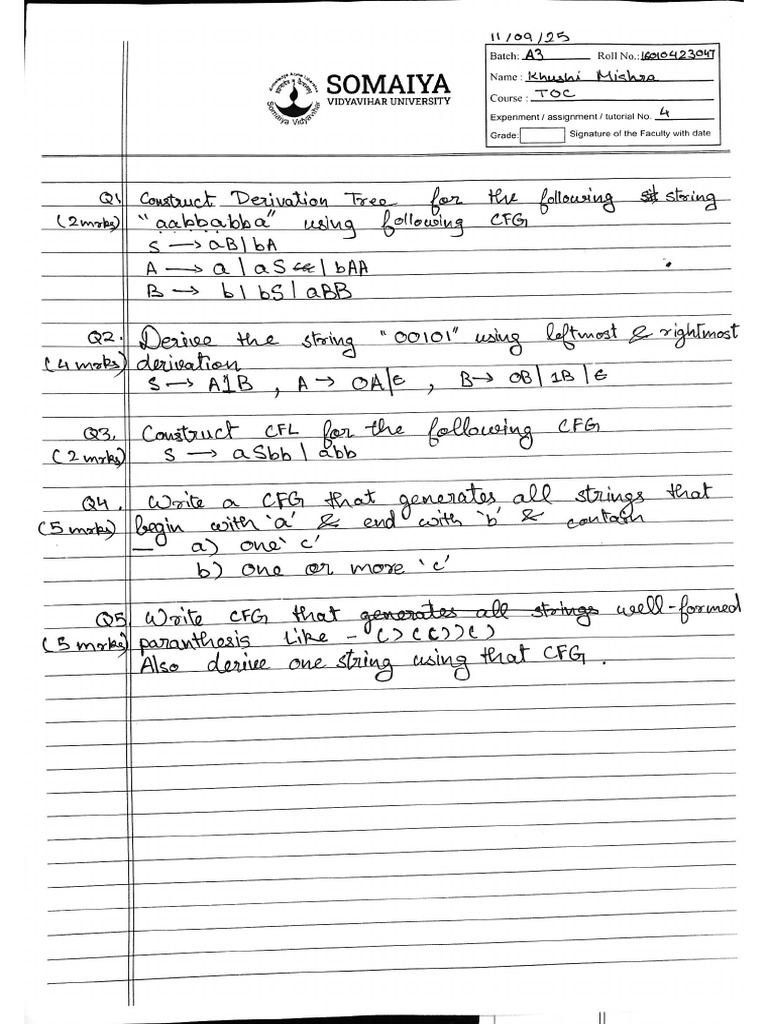 11/09/25
Batch: A3 Roll No.: 16010423047
Name : Khushi Mishra
Course : TOC
Experiment / assignment / tutorial No. 4
Grade: Signature of the Faculty with date
SOMAIYA
VIDYAVIHAR UNIVERSITY
Somaiya Vidyavihar
Q1 Construct Derivation Tree for the following string
(2mrks) "aabbabba" using following CFG
S → aB | bA
A → a | aS | bAA
B → b | bS | aBB
Q2. Derive the string "00101" using leftmost & rightmost
(4 mrks) derivation
S → A1B , A → 0A|ε , B → 0B | 1B | ε
Q3. Construct CFL for the following CFG
(2 mrks) S → aSbb | abb
Q4. Write a CFG that generates all strings that
(5 mrks) begin with 'a' & end with 'b' & contain
– a) one 'c'
b) one or more 'c'
Q5 Write CFG that generates all strings well-formed
(5 mrks) paranthesis like – ( ) ( ( ) ) ( )
Also derive one string using that CFG.